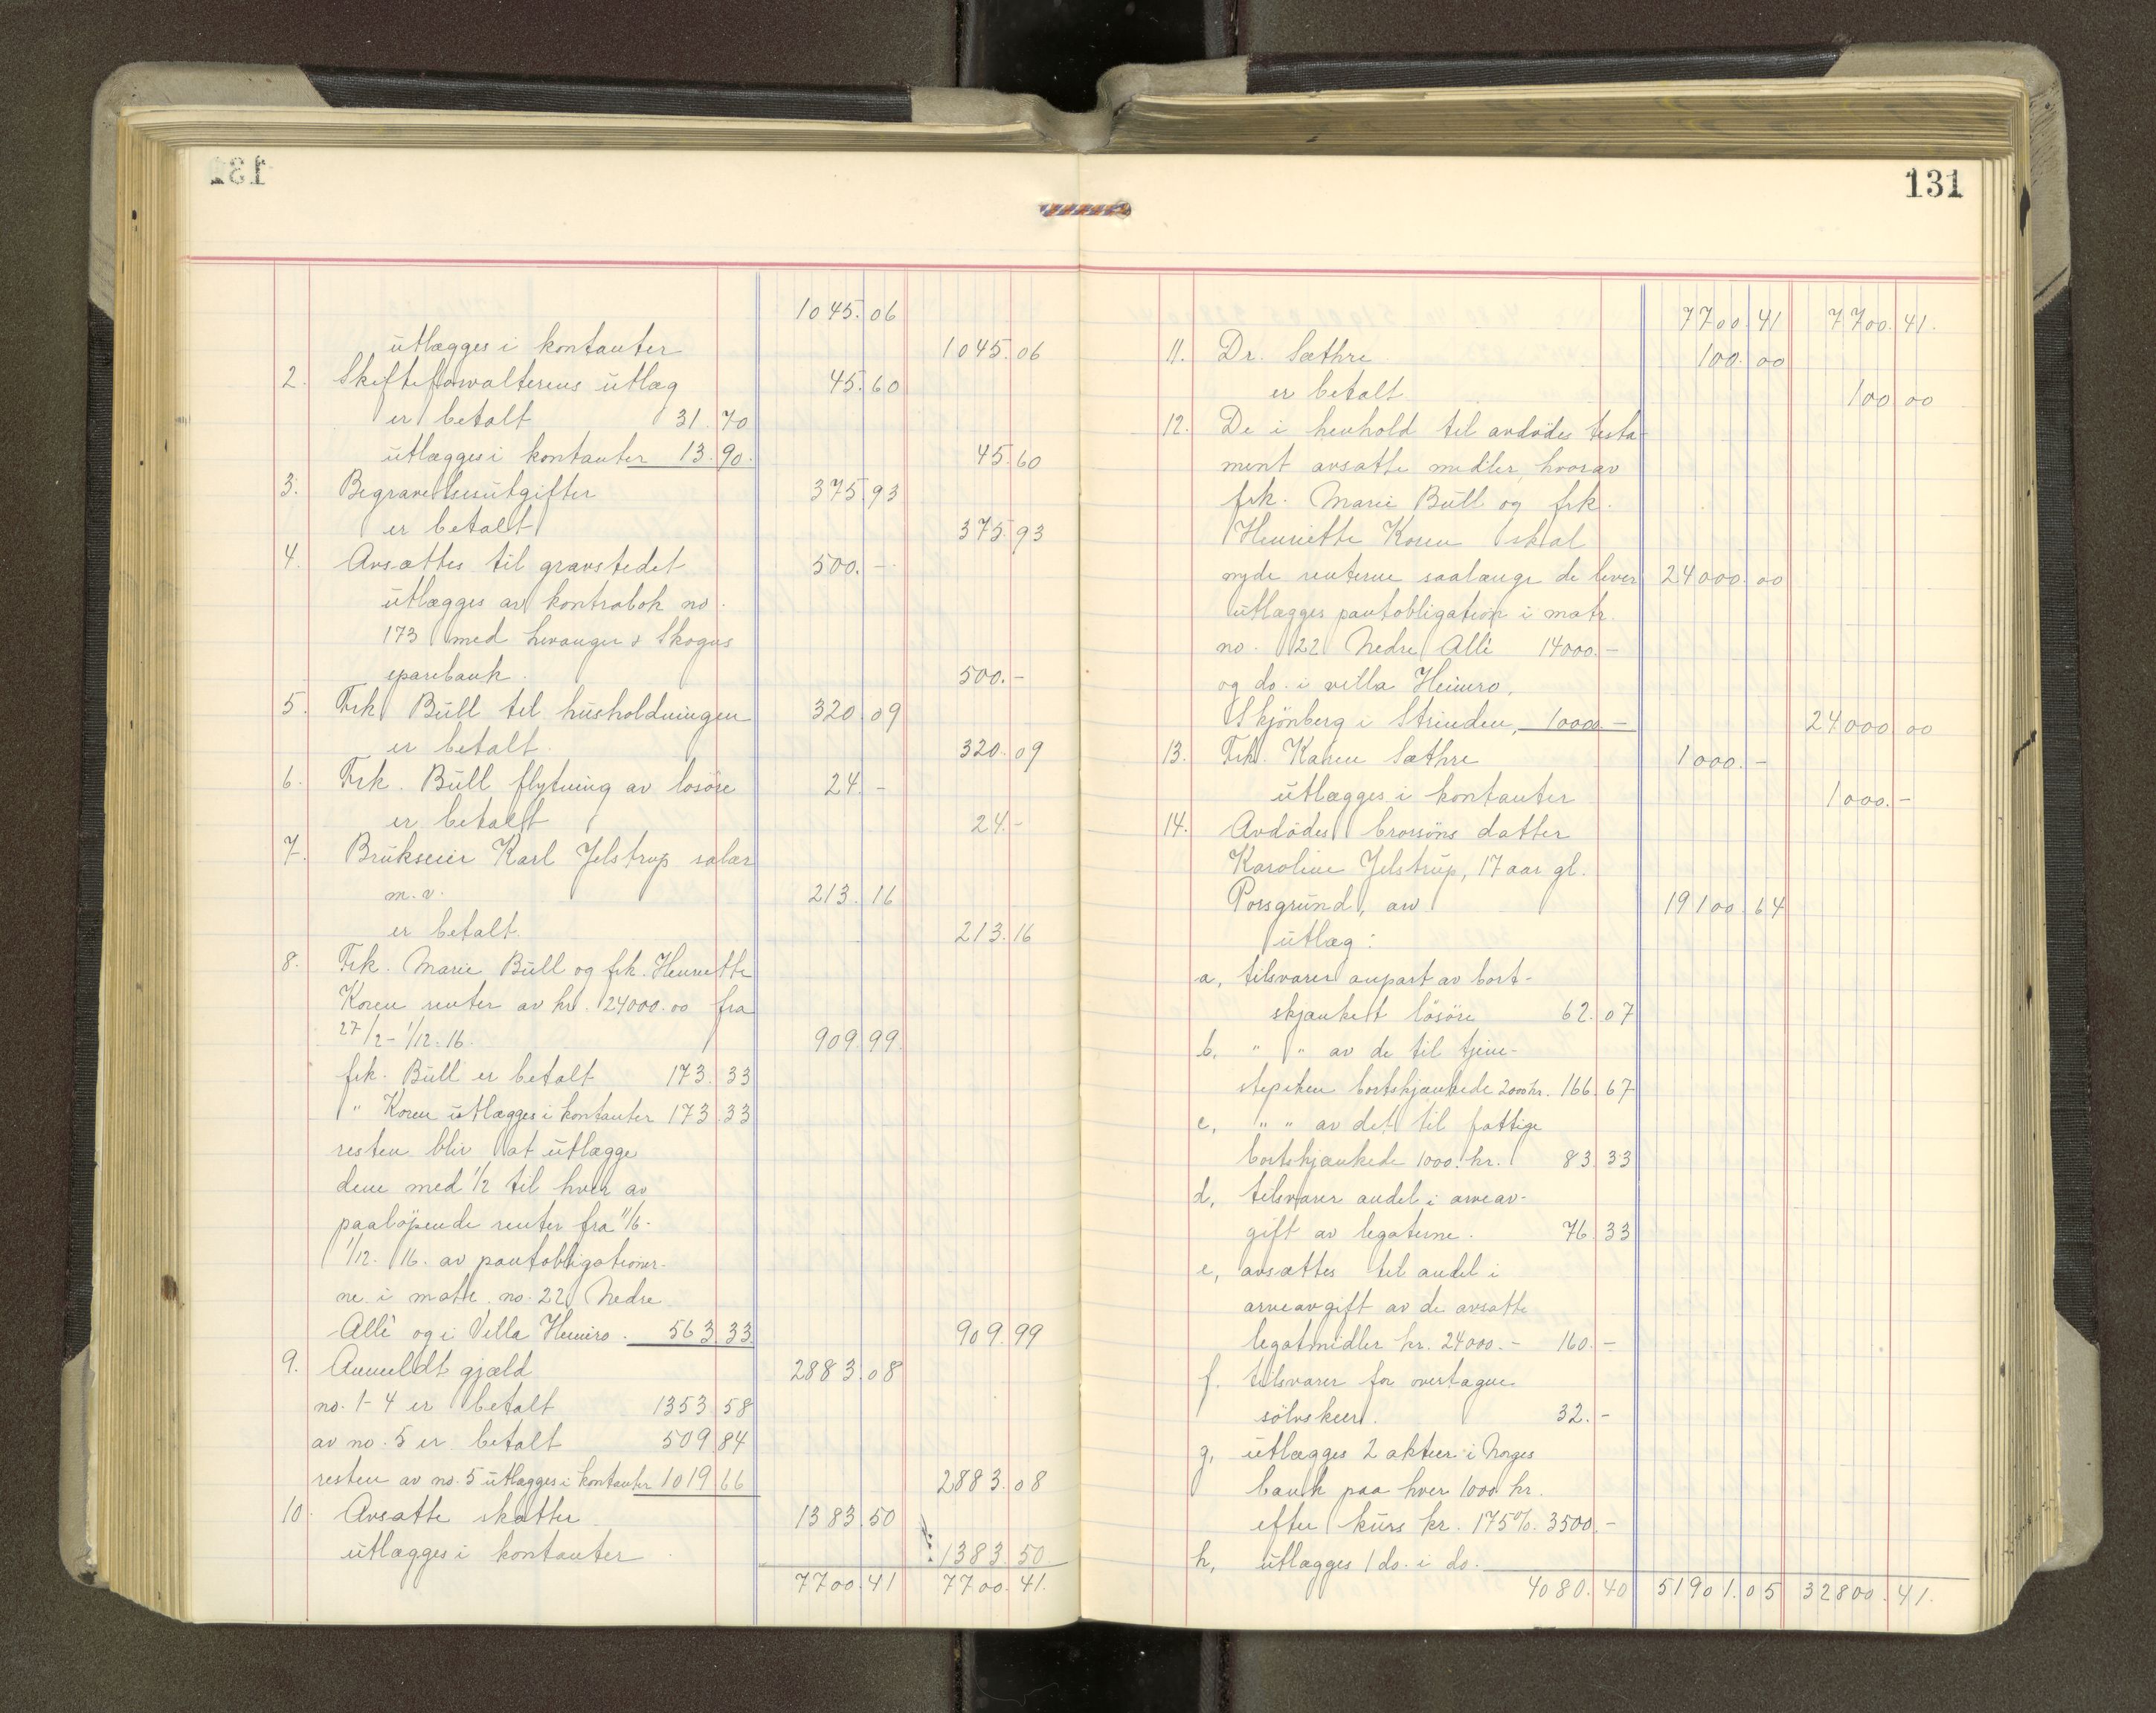 1045.06
utlægges i kontanter 1045.06
2. Skifteforvalterens utlæg 45.60
er betalt 31.70
utlægges i kontanter 13.90. 45.60
3. Begravelsesutgifter 375.93
er betalt 375.93
4. Avsættes til gravstedet 500.-
utlægges av kontrabok no.
173 med Levanger & Skogns
sparebank. 500.-
5. Frk. Büll til husholdningen 320.09
er betalt. 320.09
6. Frk. Büll flytning av løsöre 24.-
er betalt 24.-
7. Brukseier Karl Jelstrup salær
m.v. 213.16
er betalt. 213.16
8. Frk. Marie Büll og frk. Henriette
Koren renter av kr. 24000.00 fra
27/2 - 1/12.16. 909.99
frk. Büll er betalt 173.33
" Koren utlægges i kontanter 173.33
resten blir at utlægge
dem med 1/2 til hver av
paalöpende renter fra 11/6-
1/12. 16. av pantobligationer-
ne i matr. no. 22 Nedre
Allè og i Villa Heimro. 563.33 909.99
9. Anmeldt gjæld 2883.08
no. 1-4 er betalt 1353.58
av no. 5 er betalt 509.84
resten av no. 5 utlægges i kontanter 1019.66 2883.08
10. Avsatte skatter 1383.50
utlægges i kontanter 1383.50
7700.41 7700.41.
131
7700.41 7700.41.
11. Dr. Sæthre 100.00
er betalt 100.00
12. De i henhold til avdödes testa-
ment avsatte midler, hvorav
frk. Marie Büll og frk.
Henriette Koren skal
nyde renterne saalænge de lever 24000.00
utlægges pantobligation i matr.
no. 22 Nedre Allè 14000.-
og do. i villa Heimro,
Skjönberg i Strinden, 10000.- 24000.00
13. Frk. Karen Sæthre 1000.-
utlægges i kontanter 1000.-
14. Avdödes brorsöns datter
Karoline Jelstrup, 17 aar gl.
Porsgrund, arv 19100.64
utlæg:
a, tilsvarer anpart av bort-
skjænket lösöre 62.07
b, " " av de til tjene-
stepiken bortskjænkede 2000 kr. 166.67
c, " " av det til fattige
bortskjænkede 1000 kr. 83.33
d, tilsvarer andel i arveav-
gift av legaterne. 76.33
e, avsættes til andel i
arveavgift av de avsatte
legatmidler kr. 24000.- 160.-
f. tilsvarer for overtagne
sölvskeer. 32.-
g, utlægges 2 aktier i Norges
bank paa hver 1000 kr.
efter kurs kr. 175%. 3500.-
h, utlægges 1 do. i do.
4080.40 51901.05 32800.41.